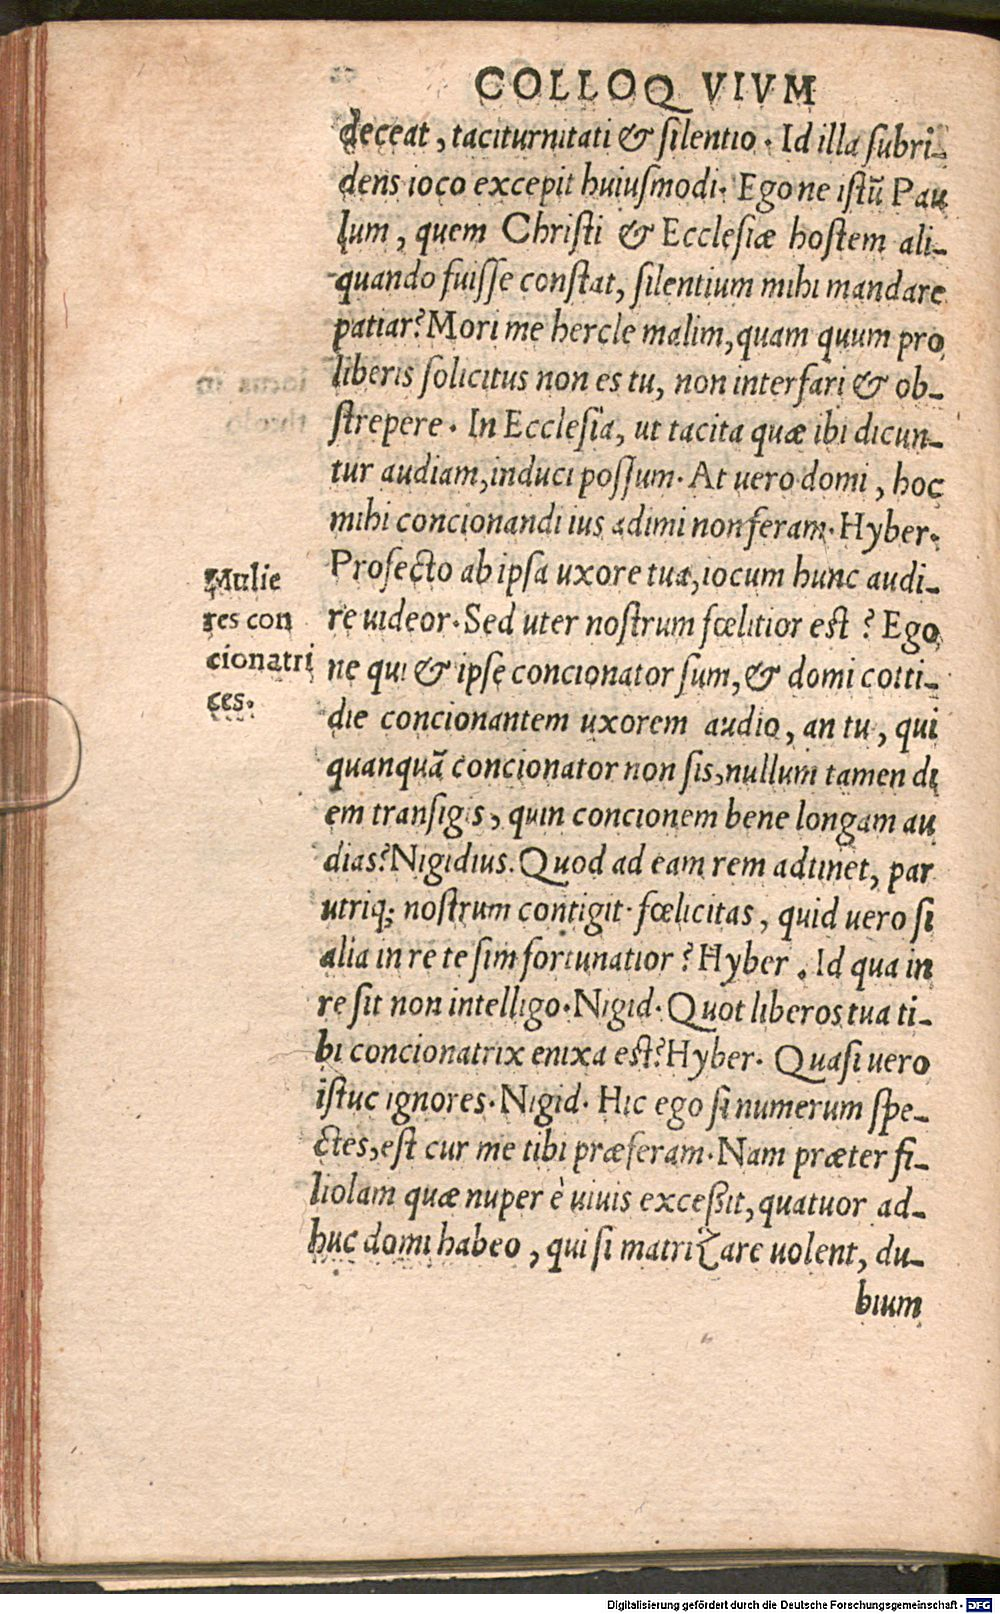 COLLOQ VIVM
deceat, taciturnitati & silentio. Id illa subri-
dens ioco excepit huiusmodi. Ego ne istũ Pau
lum, quem Christi & Ecclesiæ hostem ali-
quando fuisse constat, silentium mihi mandare
patiar? Mori me hercle malim, quam quum pro
liberis solicitus non es tu, non interfari & ob-
strepere. In Ecclesia, ut tacita quæ ibi dicun-
tur audiam, induci possum. At uero domi, hoc
mihi concionandi ius adimi non feram. Hyber.
Profecto ab ipsa uxore tua, iocum hunc audi-
re uideor. Sed uter nostrum fœlitior est? Ego
ne qui & ipse concionator sum, & domi cotti-
die concionantem uxorem audio, an tu, qui
quanquã concionator non sis, nullum tamen di
em transigis, quin concionem bene longam au
dias? Nigidius. Quod ad eam rem adtinet, par
utriq; nostrum contigit fœlicitas, quid uero si
alia in re te sim fortunatior? Hyber. Id qua in
re sit non intelligo. Nigid. Quot liberos tua ti-
bi concionatrix enixa est? Hyber. Quasi uero
istuc ignores. Nigid. Hic ego si numerum spe-
ctes, est cur me tibi præferam. Nam præter fi-
liolam quæ nuper è uiuis excessit, quatuor ad-
huc domi habeo, qui si matrizare uolent, du-
bium
Mulie
res con
cionatri
ces.
Digitalisierung gefördert durch die Deutsche Forschungsgemeinschaft - DFG